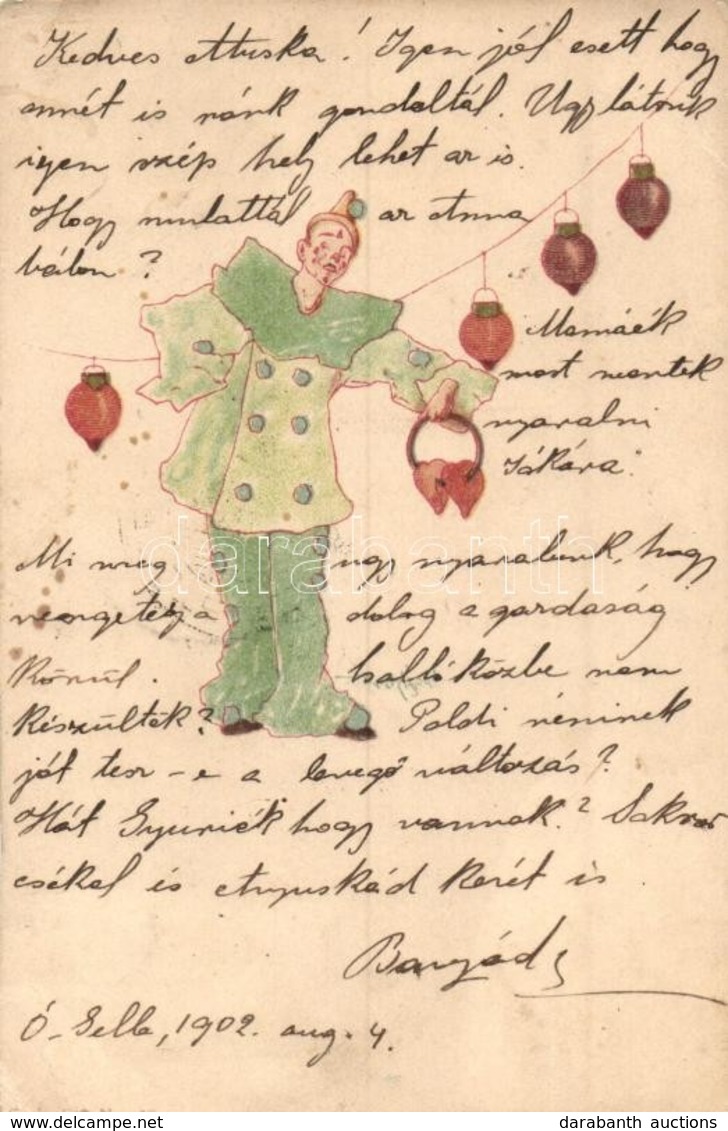 Kedves Attuska! Igen jól esett hogy
annét is ránk gondoltál. Ugy látszik
igen szép hely lehet az is.
Hogy mulattál az Anna
bálon?
Mamáék
most mentek
nyaralni
Mi meg ugy nyaralunk, hogy
dolog a gazdaság
Körül. hallóközbe nem
Készültek? Poldi néninek
jót tesz-e a levegő változás?
Hát Gyuriék hogy vannak? Sokszor
csókol és Anyuskád Kezét is
Ó-Gella, 1902. aug. 4.
darabanth
darabanth auctions